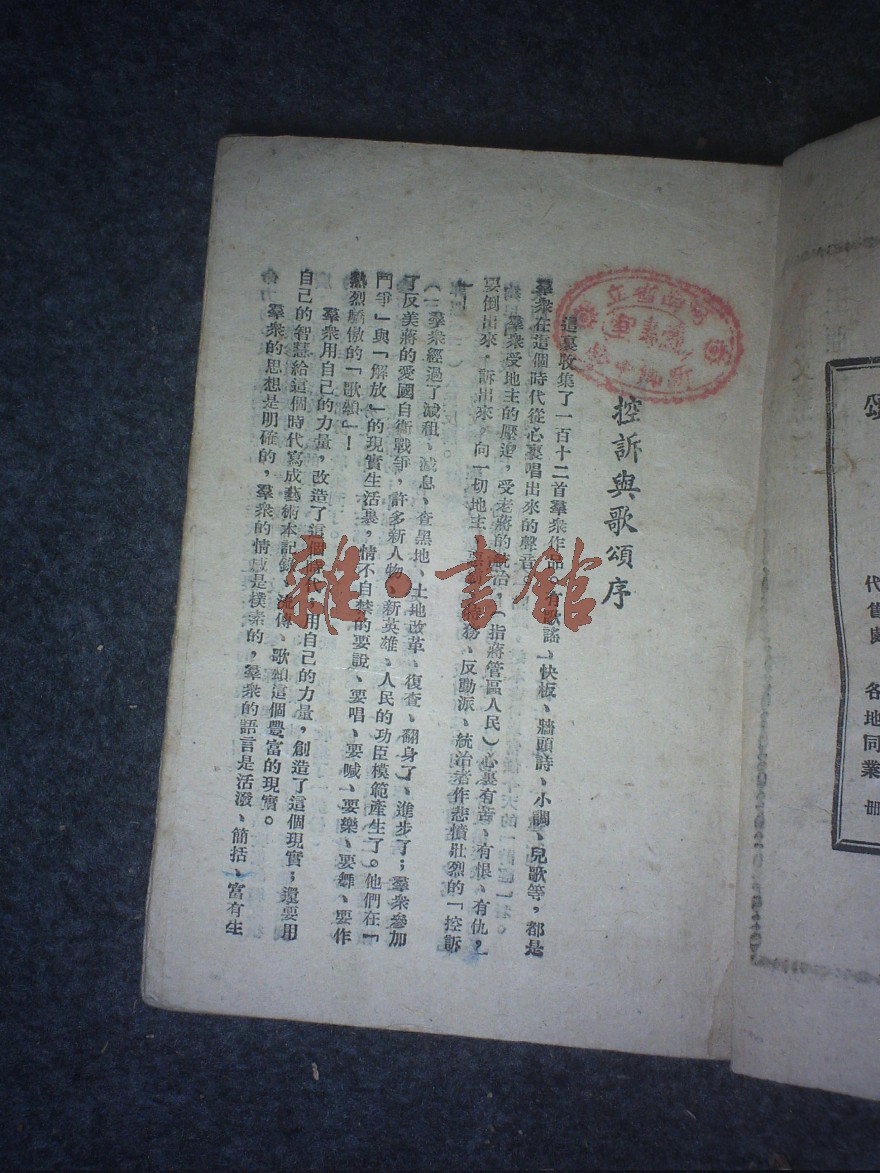 控訴與歌頌序
這裏收集了一百十二首羣衆作品。有歌謠、快板、牆頭詩、小調、兒歌等，都是
羣衆在這個時代從心裏唱出來的聲音。
羣衆受地主的壓迫，受老蔣的統治，（指蔣管區人民）心裏有苦、有恨、有仇，
要倒出來，訴出來，向一切地主、務、反動派、統治者作悲憤壯烈的「控訴
」！
羣衆經過了減租、減息、查黑地、土地改革、復查、翻身了、進步了；羣衆參加
了反美蔣的愛國自衛戰爭，許多新人物、新英雄、人民的功臣模範產生了。他們在「
鬥爭」與「解放」的現實生活裏，情不自禁的要說、要唱、要喊、要樂、要舞、要作
熱烈驕傲的「歌頌」！
羣衆用自己的力量，改造了這個時代；用自己的力量，創造了這個現實；還要用
自己的智慧給這個時代寫成藝術本記錄、流傳、歌頌這個豐富的現實。
羣衆的思想是明確的，羣衆的情感是樸素的，羣衆的語言是活潑、簡括、富有生
代售處 各地同業
冊
雜·書館